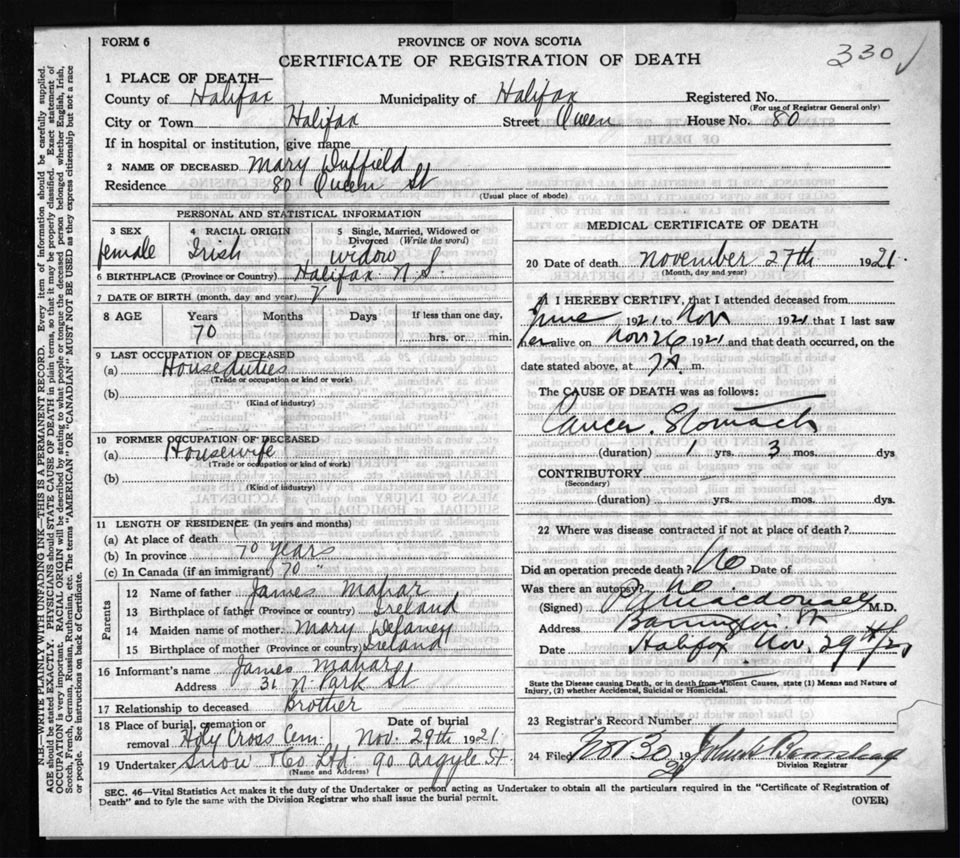 FORM 6
PROVINCE OF NOVA SCOTIA
330
CERTIFICATE OF REGISTRATION OF DEATH
1 PLACE OF DEATH—
County of Halifax Municipality of Halifax Registered No.
(For use of Registrar General only)
City or Town Halifax Street Queen House No. 80
If in hospital or institution, give name
2 NAME OF DECEASED Mary Duffield
Residence 80 Queen St
(Usual place of abode)
PERSONAL AND STATISTICAL INFORMATION
3 SEX 4 RACIAL ORIGIN 5 Single, Married, Widowed or Divorced (Write the word)
female Irish widow
6 BIRTHPLACE (Province or Country) Halifax N.S.
7 DATE OF BIRTH (month, day and year)
8 AGE Years Months Days If less than one day,
70 hrs. or min.
9 LAST OCCUPATION OF DECEASED
(a) House duties
(Trade or occupation or kind of work)
(b)
(Kind of industry)
10 FORMER OCCUPATION OF DECEASED
(a) Housewife
(Trade or occupation or kind of work)
(b)
(Kind of industry)
11 LENGTH OF RESIDENCE (In years and months)
(a) At place of death
(b) In province 70 years
(c) In Canada (if an immigrant) 70 "
Parents
12 Name of father James Mahar
13 Birthplace of father (Province or country) Ireland
14 Maiden name of mother Mary Delaney
15 Birthplace of mother (Province or country) Ireland
16 Informant's name James Mahar
Address 31 N. Park St
17 Relationship to deceased Brother
18 Place of burial, cremation or removal Holy Cross Cem. Date of burial Nov. 29th 1921
19 Undertaker Snow & Co Ltd. 90 Argyle St.
(Name and Address)
MEDICAL CERTIFICATE OF DEATH
20 Date of death November 27th 1921.
(Month, day and year)
21 I HEREBY CERTIFY, that I attended deceased from
June 1921 to Nov 1921 that I last saw
her alive on Nov 26 1921 and that death occurred, on the
date stated above, at 7A. m.
The CAUSE OF DEATH was as follows:
Cancer. Stomach
(duration) 1 yrs. 3 mos. dys
CONTRIBUTORY
(Secondary)
(duration) yrs. mos. dys.
22 Where was disease contracted if not at place of death?
Did an operation precede death? No Date of
Was there an autopsy? No
(Signed) Macdonald M.D.
Address Barrington St
Date Halifax Nov. 29th
State the Disease causing Death, or in death from Violent Causes, state (1) Means and Nature of
Injury, (2) whether Accidental, Suicidal or Homicidal.
23 Registrar's Record Number
24 Filed Nov 30 1921 John
Division Registrar
SEC. 46—Vital Statistics Act makes it the duty of the Undertaker or person acting as Undertaker to obtain all the particulars required in the "Certificate of Registration of
Death" and to fyle the same with the Division Registrar who shall issue the burial permit.
(OVER)
N.B.—WRITE PLAINLY WITH UNFADING INK—THIS IS A PERMANENT RECORD. Every item of information should be carefully supplied.
AGE should be stated EXACTLY. PHYSICIANS should STATE CAUSE OF DEATH in plain terms, so that it may be properly classified. Exact statement of
OCCUPATION is very important. RACIAL ORIGIN will be described by stating to what people or tongue the deceased person belonged whether English, Irish,
Scotch, French, German, Russian, Ruthenian, etc. The terms "AMERICAN" OR "CANADIAN" MUST NOT BE USED as they express citizenship but not a race
or people. See instructions on back of Certificate.